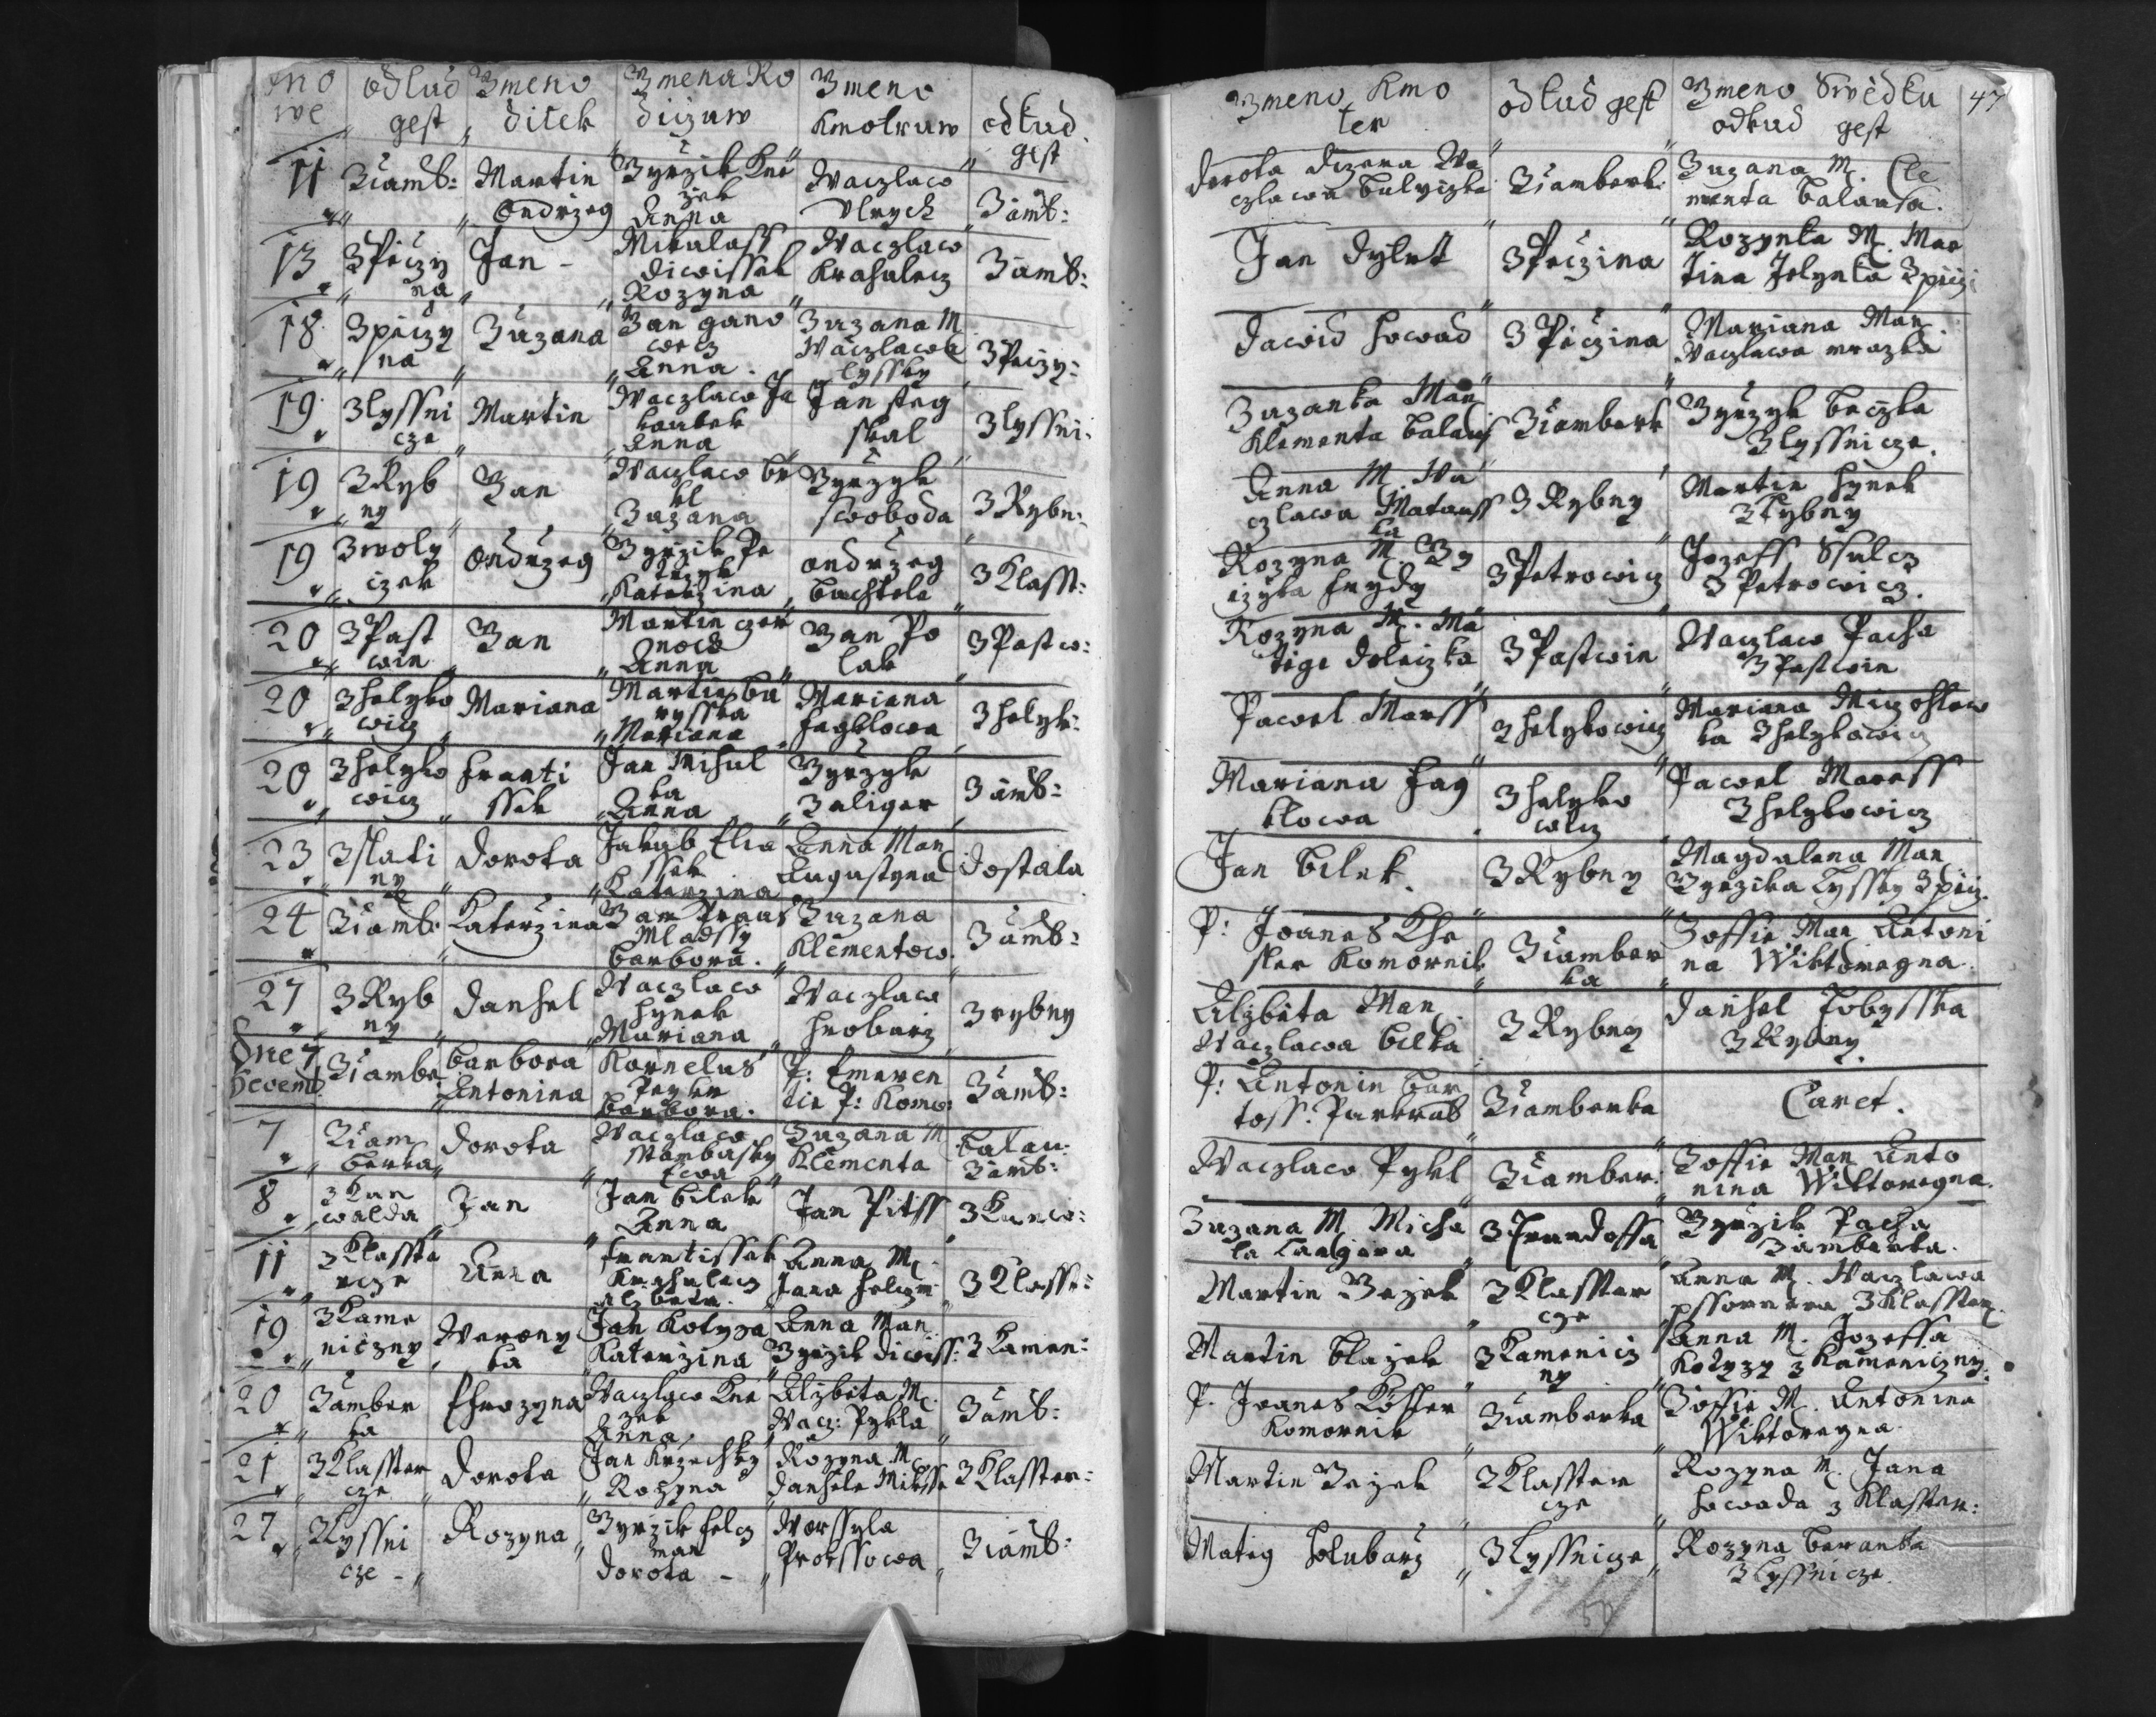 dno we odkud gest Zmeno ditek Zmena Ro diczuw Zmeno Kmotruw odkud gest
11 Ziamb: Martin Ondrzeg Zyrzik Kne zek Anna Waczlaw Vlrych Ziamb:
13 Z Pěczy na Jan - Mikulass diwissek Rozyna Waczlaw Krahulecz Ziamb:
18 Z pěczy na Zuzana Zan gano wecz Anna. Zuzana M Waczlawa lyssky Z Peczy:
19 Z lyssni cze Martin Waczlaw Ja kaubek Anna Jan steg skal Z lyssni:
19 Z Ryb ny Zan Waczlaw Zuzana Zyrzyk swoboda Z Rybn:
19 Z woly czek Ondrzeg Zyrzik Pe Katerzina ondrzeg bachtele Z Klasst:
20 Z Past win Zan Martin czer noch Anna Zan Po lak Z Pastw:
20 Z helyko wicz Mariana Martin bu rysska Mariana Mariana hagklowa Z helyk:
20 Z helyko wicz franti ssek Jan Mihul ka Anna Zyrzyk Zaliger Ziamb:
23 Z slati ny dorota Jakub Elia ssek Katerzina Anna Man Augustyna dostala
24 Ziamb: Katerzina Zan Praus Mladssy barbora. Zuzana Klementow. Ziamb:
27 Z Ryb ny danhel Waczlaw hynek Mariana Waczlaw hrobarz Z rybny
dne 7 Decemb. Ziambe barbora Antonina Kornelus barbora. P: Emeren tie P: Komo: Ziamb:
7 Ziam berka dorota Waczlaw Ewa Zuzana M Klementa balau: Ziamb:
8 Z Kun walda Jan Jan bilek Anna Jan Pitss Z Kunw:
11 Z Klasste rcze Anna frantissek Krahulecz Alzbeta. Anna M. Jana helczm Z Klasste:
19 Z Kame niczny Werony ka Jan Kotyza Katerzina Anna Man Zyrzik diwiss: Z Kamen:
20 Ziamber ka Efrozyna Waczlaw Kne zek Anna. Alzbeta M. Wacz: Pykla Ziamb:
21 Z Klasster cze dorota Jan Krzechky Rozyna Rozyna M. danhele Mikss Z Klasster:
27 Z lyssni cze - Rozyna Zyrzik helcz man dorota - Worssyla Prossowa Ziamb:
Zmeno Kmo ter Odkud gest Zmeno Swědku odkud gest 47
dorota dczera Wa czlawa bulyczka Ziamberk: Zuzana M. Cle menta balausa.
Jan dylrtt Z Peczina Rozynka M. Mar tina Jelynka Z pěcz:
dawid howad Z Pěczina Mariana Man. Waczlawa mrazka
Zuzanka Man Klementa balaus Ziamberk Zyrzyk beczka Z lyssnicze.
Anna M. Wa czlawa Matauss ka Z Rybny Martin hynek Z Rybny
Rozyna M. Zy rzyka frydy Z Petrowicz Jozeff Ssulcz Z Petrowicz.
Rozyna M. Ma tege doleczka Z Pastwin Waczlaw Pacha Z Pastwin
Pawel Marss Z helykowicz Mariana ka Z helykowicz
Mariana hag klowa Z helyko wicz Pawel Marss Z helykowicz
Jan bilek. Z Rybny Magdalena Man Zyrzika Lyssky Z pěcz.
P: Joanes Khe sler Komornik Ziamber ka Zoffie Man Antoni na Wiktoregna
Alzběta Man Waczlawa bilka Z Rybny danhel Kobysska Z Rybny.
P: Antonin bar toss: Purkrab Ziamberka Caret.
Waczlaw Pykl Ziamber: Zoffie Man Anto nina Wiktoregna.
Zuzana M Micha la langera Z Zyrzik Pacha Ziamberka.
Martin Vezek Z Klasster cze Anna M. Waczlawa pssornera Z Klasster.
Martin blazek Z Kamenicz ny Anna M. Jozeffa Kotyzy z Kameniczny.
P. Joanes Kösler Komornik Ziamberka Zoffie M. Antonina Wiktoregna
Martin Vezek Z Klasster cze Rozyna M. Jana howada z Klasster:
Mateg holubarz Z lyssnicze Rozyna beranka Z lyssnicze.